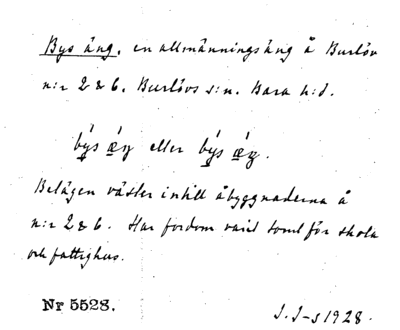 Bys äng, en allmänningsäng å Burlöv
n:r 2 & 6. Burlövs s:n. Bara h:d.
býs ǽŋ eller býs ǽŋ.
Belägen väster intill åbyggnaderna å
n:r 2 & 6. Har fordom varit tomt för skola
och fattighus.
Nr 5528.
J. J-s 1928.